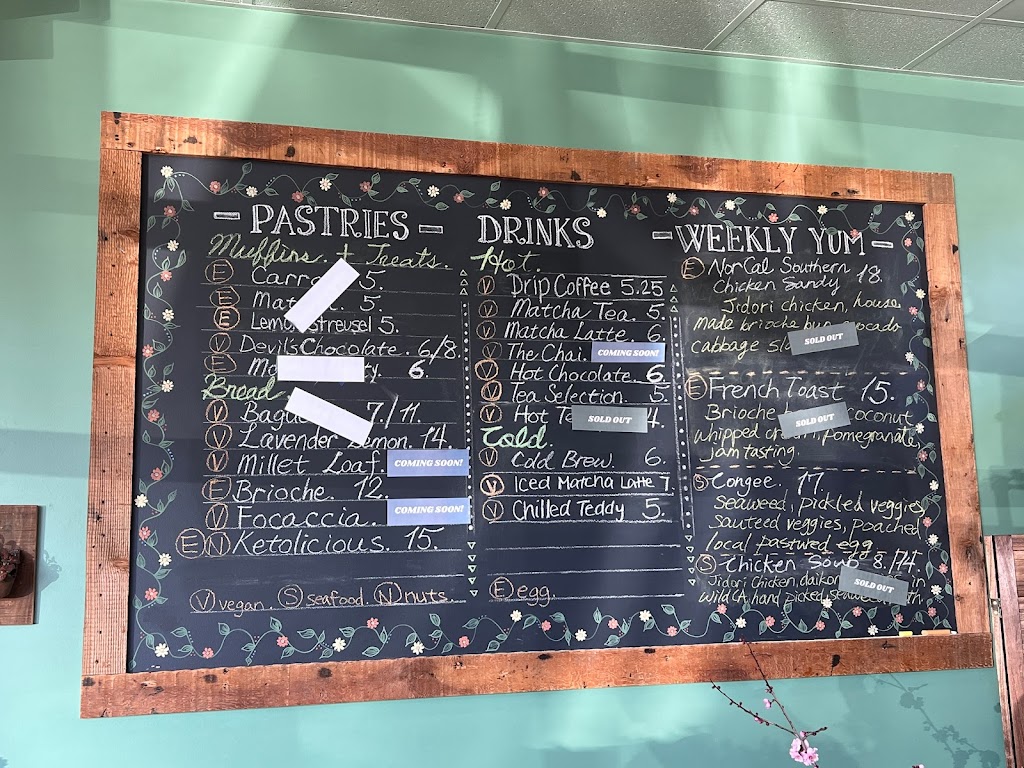 - PASTRIES -
Muffins. + Treats.
E Carro 5.
E Mat 5.
E Lemon Streusel 5.
V Devil's Chocolate. 6/8.
E 6.
Bread
V Bagu 7/11.
V Lavender Lemon. 14.
V Millet Loaf. COMING SOON!
E Brioche. 12.
V Focaccia. COMING SOON!
E N Ketolicious. 15.
V vegan. S seafood. N nuts.
DRINKS
Hot.
V Drip Coffee 5.25
V Matcha Tea. 5.
V Matcha Latte. 6.
V The Chai. COMING SOON!
V Hot Chocolate. 6.
V Tea Selection. 5.
V Hot Te SOLD OUT 4.
Cold.
V Cold Brew. 6.
V Iced Matcha Latte 7.
V Chilled Teddy 5.
E egg.
- WEEKLY YUM -
E NorCal Southern 18.
Chicken Sandy
Jidori chicken, house
made brioche bun, avocado
cabbage sl SOLD OUT
E French Toast 15.
Brioche SOLD OUT coconut
whipped cream, pomegranate,
jam tasting.
S Congee. 17.
Seaweed, pickled veggies,
sauteed veggies, poached
local pastured egg
S Chicken Soup 8./14.
Jidori Chicken, daikon SOLD OUT in
wild CA. hand picked, seaweed